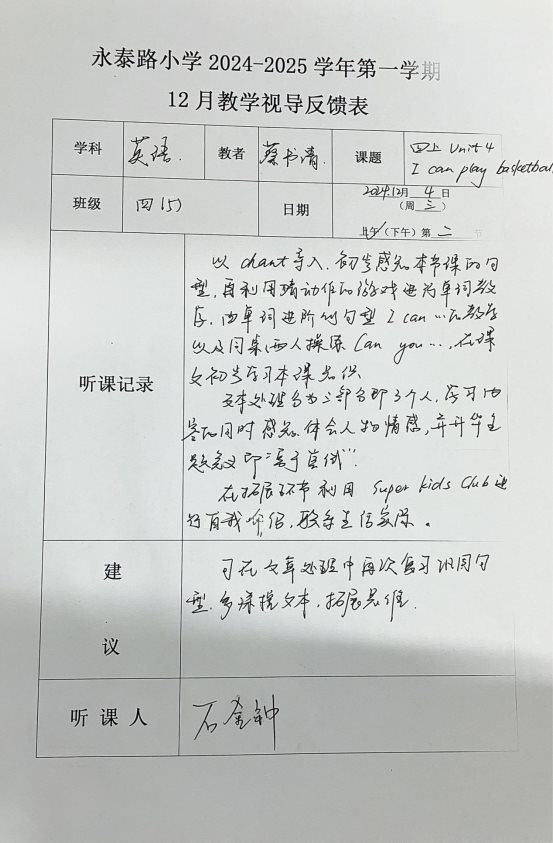 永泰路小学 2024-2025 学年第一学期
12 月教学视导反馈表
学科 英语. 教者 蔡书清. 课题 四上 Unit 4
I can play basketball
班级 四(5) 日期 2024.12月 4 日
(周 三)
上午/(下午)第 二 节
听课记录
以 chant 导入,初步感知本节课的句
型,再利用猜动作的游戏进行单词教
学,由单词进阶到句型 I can …的教学
以及同桌两人操练 Can you …,在课
文初步学习本课知识.
文本处理分为三部分即3个人,学习内
容的同时感知、体会人物情感,并升华主
题意义即"勇于尝试".
在拓展环节利用 Super Kids Club 进
行自我介绍,联系生活实际。
建
议
可在文章处理中再次复习巩固句
型,多深挖文本,拓展思维.
听 课 人 石金钟